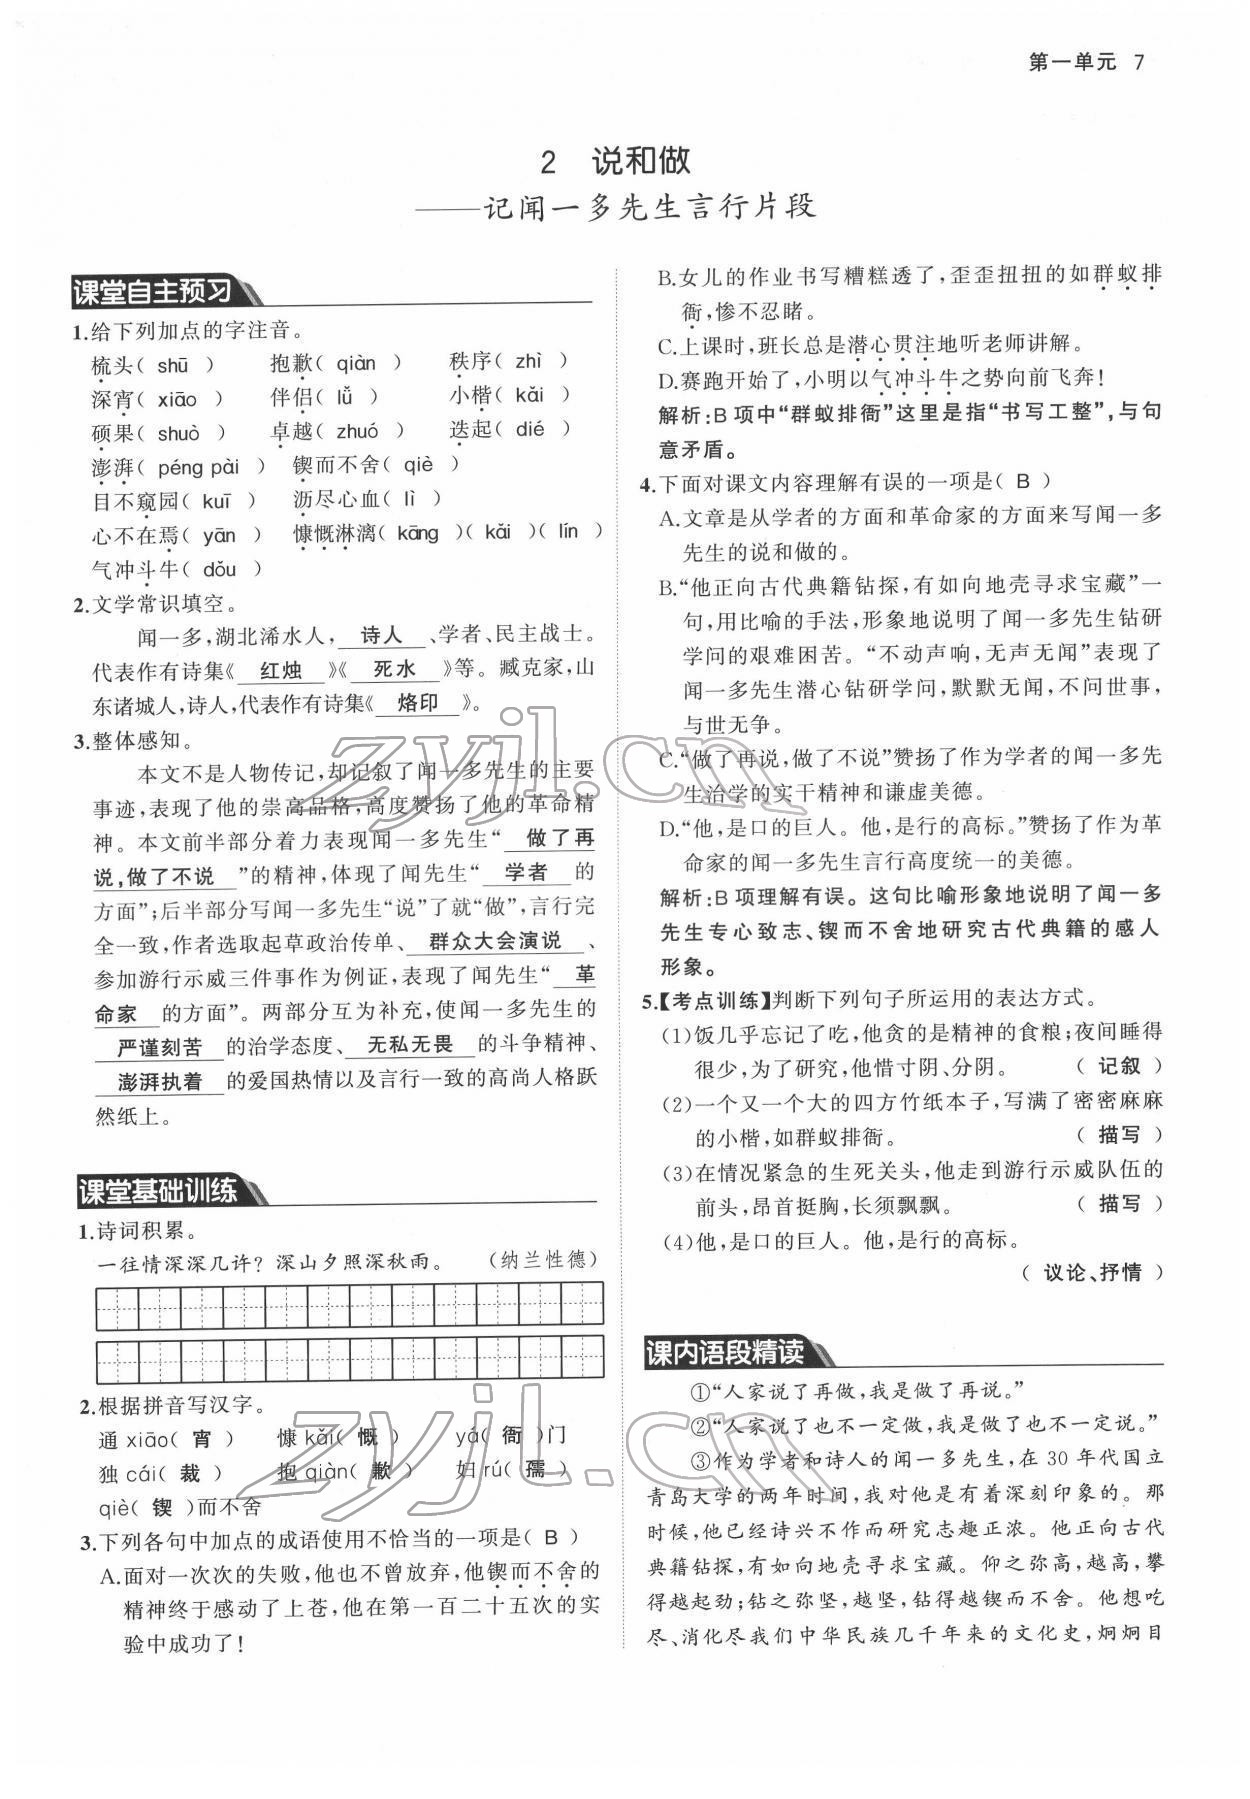 第一单元 7
2 说和做
——记闻一多先生言行片段
课堂自主预习
1.给下列加点的字注音。
梳头( shū ) 抱歉( qiàn ) 秩序( zhì )
深宵( xiāo ) 伴侣( lǚ ) 小楷( kǎi )
硕果( shuò ) 卓越( zhuó ) 迭起( dié )
澎湃( péng pài ) 锲而不舍( qiè )
目不窥园( kuī ) 沥尽心血( lì )
心不在焉( yān ) 慷慨淋漓( kāng )( kǎi )( lín )
气冲斗牛( dǒu )
2.文学常识填空。
闻一多,湖北浠水人, 诗人 、学者、民主战士。
代表作有诗集《 红烛 》《 死水 》等。臧克家,山
东诸城人,诗人,代表作有诗集《 烙印 》。
3.整体感知。
本文不是人物传记,却记叙了闻一多先生的主要
事迹,表现了他的崇高品格,高度赞扬了他的革命精
神。本文前半部分着力表现闻一多先生“ 做了再
说,做了不说 ”的精神,体现了闻先生“ 学者 的
方面”;后半部分写闻一多先生“说”了就“做”,言行完
全一致,作者选取起草政治传单、 群众大会演说 、
参加游行示威三件事作为例证,表现了闻先生“ 革
命家 的方面”。两部分互为补充,使闻一多先生的
严谨刻苦 的治学态度、 无私无畏 的斗争精神、
澎湃执着 的爱国热情以及言行一致的高尚人格跃
然纸上。
课堂基础训练
1.诗词积累。
一往情深深几许？深山夕照深秋雨。 (纳兰性德)
2.根据拼音写汉字。
通 xiāo( 宵 ) 慷 kǎi( 慨 ) yá( 衙 )门
独 cái( 裁 ) 抱 qiàn( 歉 ) 妇 rú( 孺 )
qiè( 锲 )而不舍
3.下列各句中加点的成语使用不恰当的一项是( B )
A.面对一次次的失败,他也不曾放弃,他锲而不舍的
精神终于感动了上苍,他在第一百二十五次的实
验中成功了!
B.女儿的作业书写糟糕透了,歪歪扭扭的如群蚁排
衙,惨不忍睹。
C.上课时,班长总是潜心贯注地听老师讲解。
D.赛跑开始了,小明以气冲斗牛之势向前飞奔!
解析:B 项中“群蚁排衙”这里是指“书写工整”,与句
意矛盾。
4.下面对课文内容理解有误的一项是( B )
A.文章是从学者的方面和革命家的方面来写闻一多
先生的说和做的。
B.“他正向古代典籍钻探,有如向地壳寻求宝藏”一
句,用比喻的手法,形象地说明了闻一多先生钻研
学问的艰难困苦。“不动声响,无声无闻”表现了
闻一多先生潜心钻研学问,默默无闻,不问世事,
与世无争。
C.“做了再说,做了不说”赞扬了作为学者的闻一多先
生治学的实干精神和谦虚美德。
D.“他,是口的巨人。他,是行的高标。”赞扬了作为革
命家的闻一多先生言行高度统一的美德。
解析:B 项理解有误。这句比喻形象地说明了闻一多
先生专心致志、锲而不舍地研究古代典籍的感人
形象。
5.【考点训练】判断下列句子所运用的表达方式。
(1)饭几乎忘记了吃,他贪的是精神的食粮;夜间睡得
很少,为了研究,他惜寸阴、分阴。 ( 记叙 )
(2)一个又一个大的四方竹纸本子,写满了密密麻麻
的小楷,如群蚁排衙。 ( 描写 )
(3)在情况紧急的生死关头,他走到游行示威队伍的
前头,昂首挺胸,长须飘飘。 ( 描写 )
(4)他,是口的巨人。他,是行的高标。
( 议论、抒情 )
课内语段精读
①“人家说了再做,我是做了再说。”
②“人家说了也不一定做,我是做了也不一定说。”
③作为学者和诗人的闻一多先生,在 30 年代国立
青岛大学的两年时间,我对他是有着深刻印象的。那
时候,他已经诗兴不作而研究志趣正浓。他正向古代
典籍钻探,有如向地壳寻求宝藏。仰之弥高,越高,攀
得越起劲;钻之弥坚,越坚,钻得越锲而不舍。他想吃
尽、消化尽我们中华民族几千年来的文化史,炯炯目
zyjl.cn
zyjl.cn